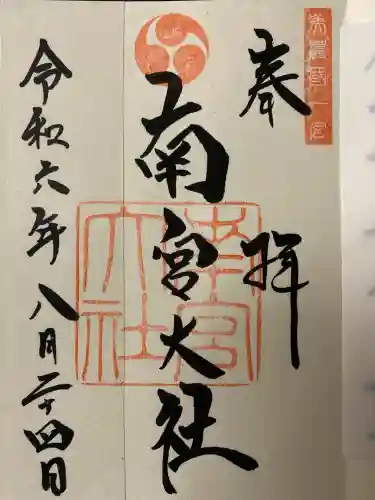 美濃國一宮
奉拝
南宮大社
南宮大社
令和六年八月二十四日